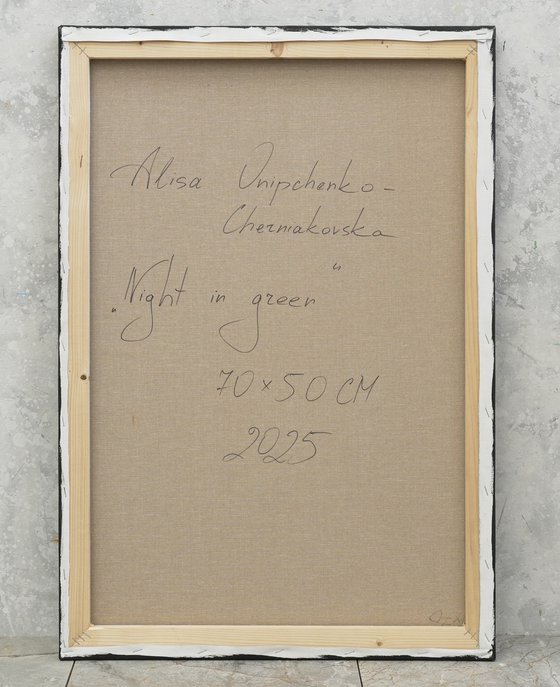 Alisa Onipchenko-
Cherniakovska
„Night in green“
70 x 50 CM
2025